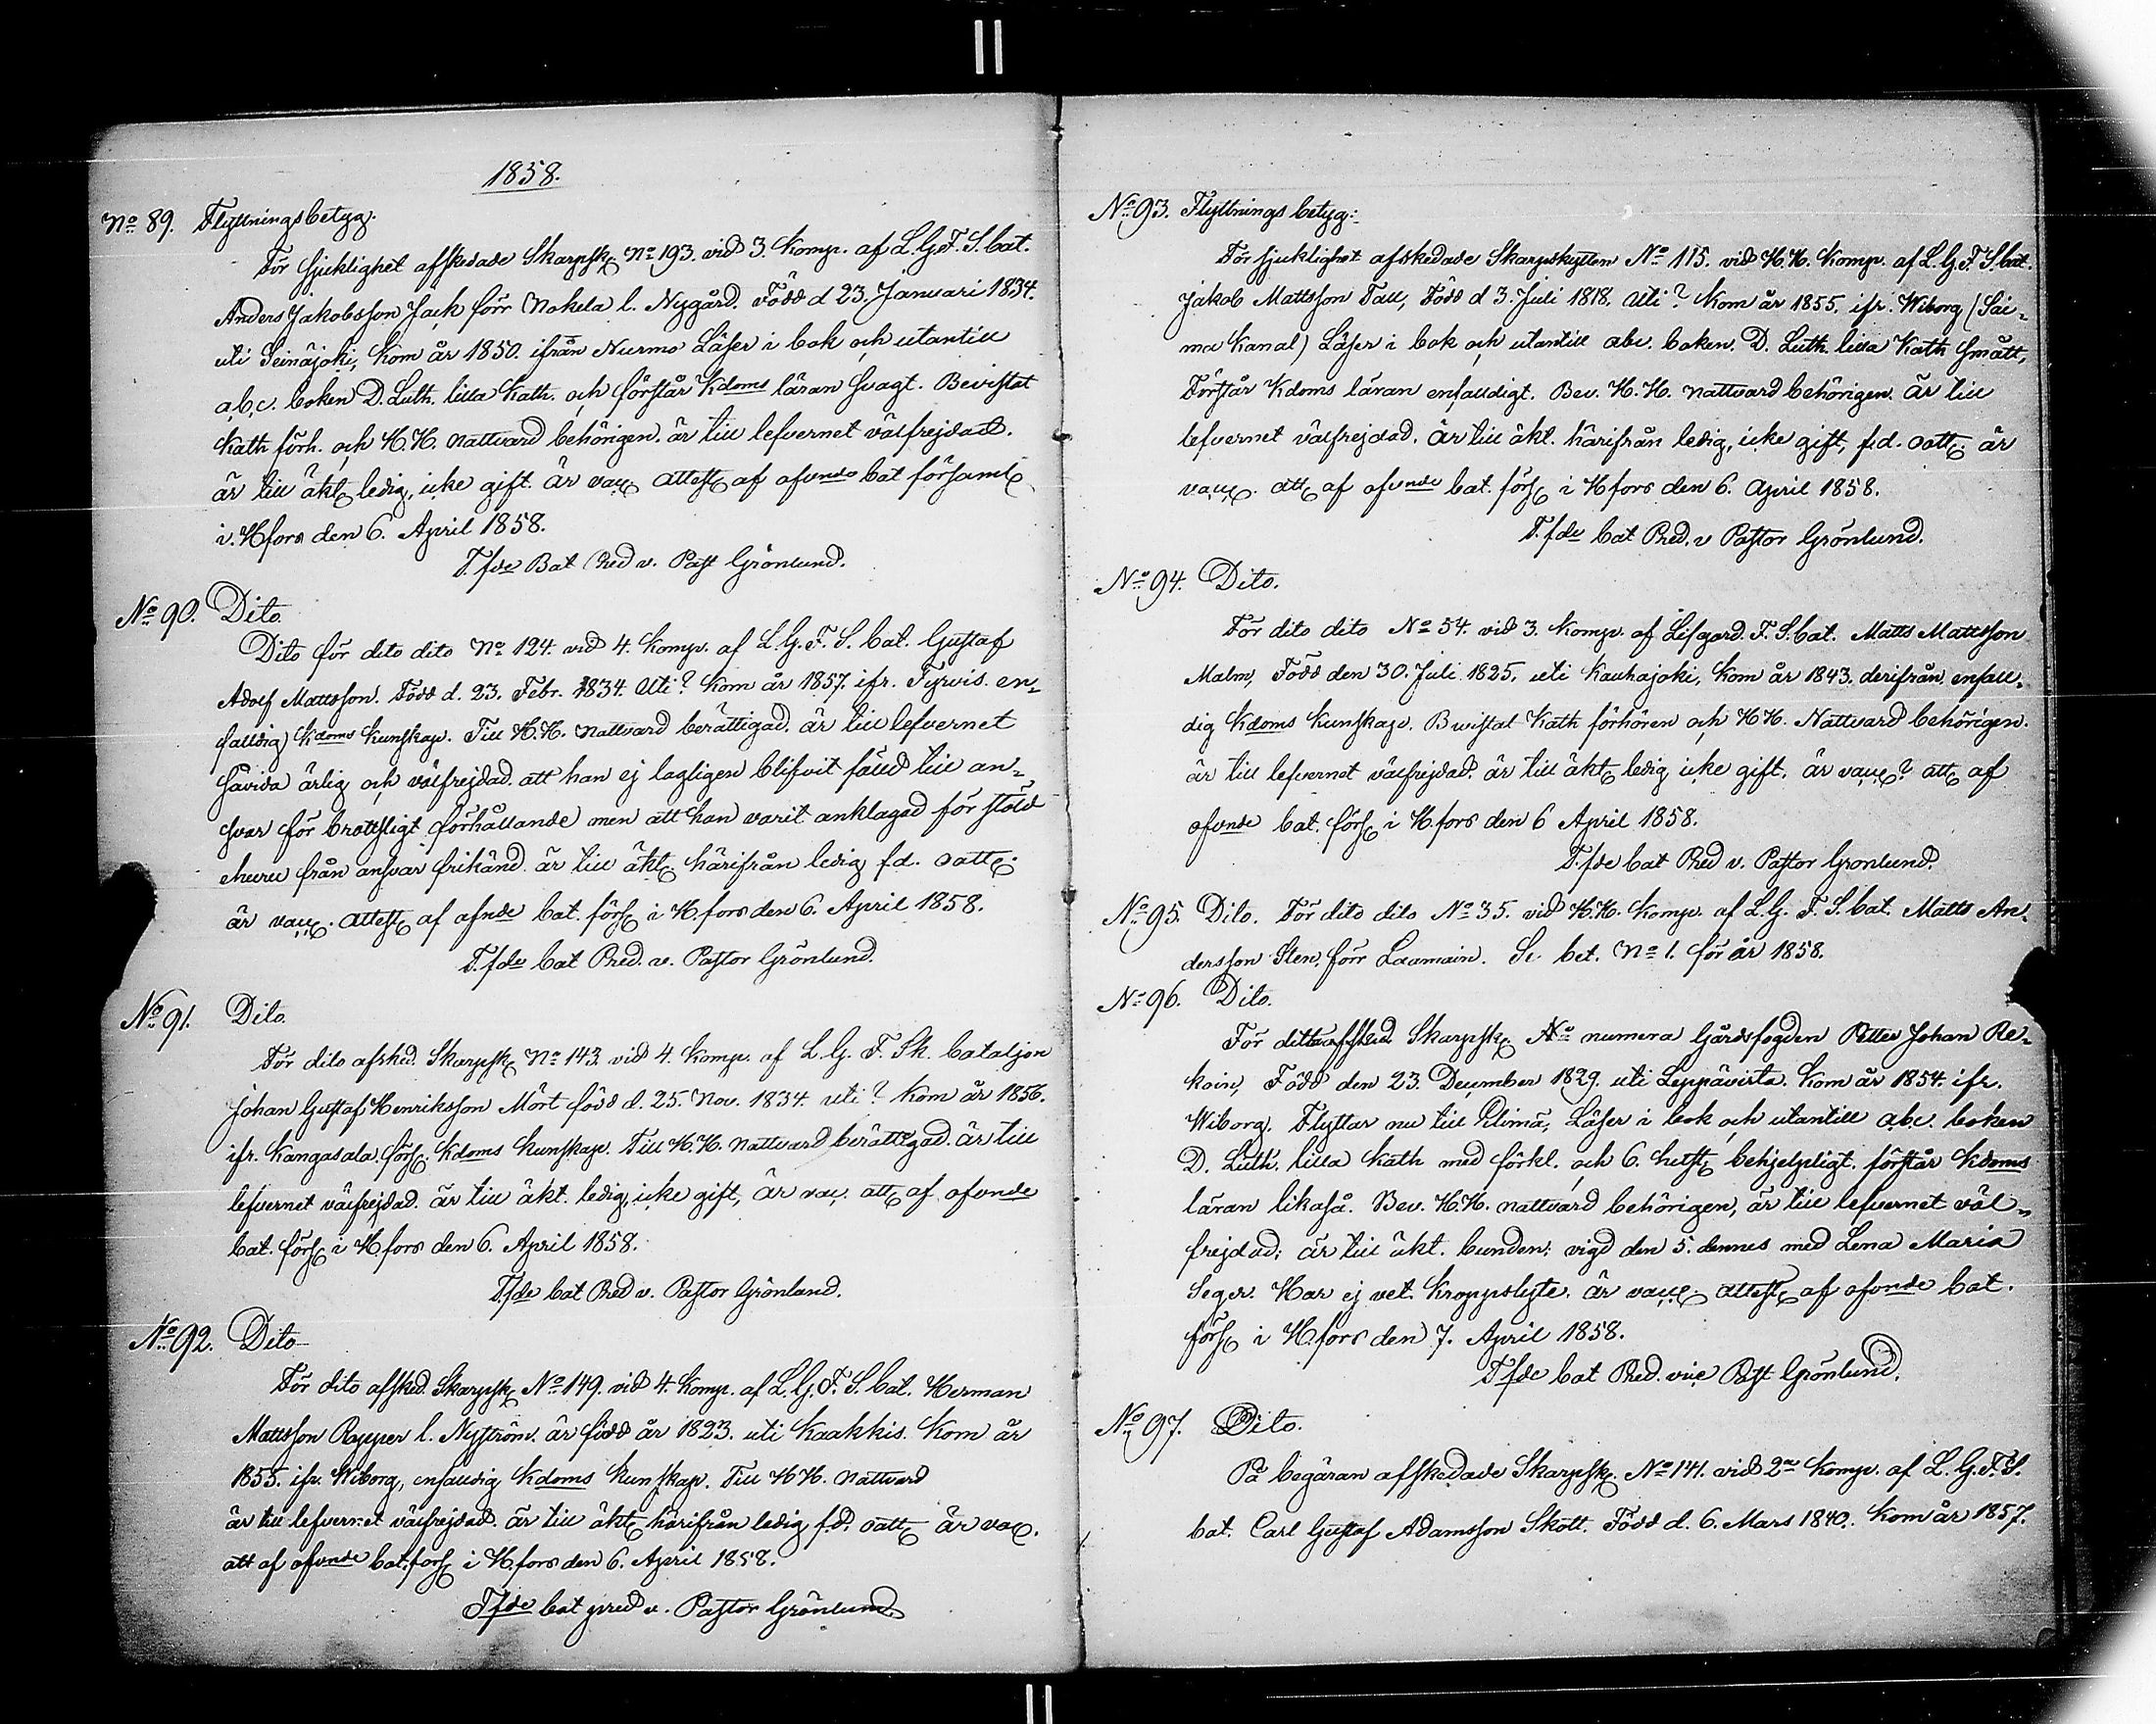 1858.
No 89. Flyttningsbetyg.
För sjuklighet afskedade Skarpsk. No 193. vid 3. Komp. af L.G.F.S. bat.
Anders Jakobsson Jack förr Nokela l. Nygård. Född d 23. Januari 1834.
uti Seinäjoki, Kom år 1850. ifrån Nurmo Läser i bok och utantill
a,b,c. boken D. Luth. lilla Kath. och förstår Kdoms läran svagt. Bevistat
Kath förh. och H.H. nattvard behörigen. är till lefvernet välfrejdad.
är till äkt. ledig, icke gift. är vacc. attest. af ofvnde bat församl.
i. H.fors den 6. April 1858.
T.fde Bat Pred v. Past Grönlund.
No 90. Dito.
Dito för dito dito No 124. vid 4. Komp. af L.G.F.S. bat. Gustaf
Adolf Mattsson. Född d. 23. Febr. 1834. Uti? Kom år 1857. ifr. Tyrvis. en-
falldig Kdoms kunskap. Till H.H. nattvard berättigad. är till lefvernet
såvida ärlig och välfrejdad. att han ej lagligen blifvit fälld till an-
svar för brottsligt förhållande men att han varit anklagad för stöld
ehuru från ansvar frikänd. är till äkt. härifrån ledig f.d. oatt.
är vacc. attest. af ofnde bat. förs. i H.fors den 6. April 1858.
T.fde bat Pred. v. Pastor Grönlund.
No 91. Dito.
För dito afsked. Skarpsk. No 143. vid 4. Komp. af L.G. F. Sk. bataljon
Johan Gustaf Henriksson Mört född d. 25. Nov. 1834. uti? Kom år 1856.
ifr. Kangasala. förs. Kdoms kunskap. Till H.H. nattvard berättigad. är till
lefvernet välfrejdad. är till äkt. ledig, icke gift, är vac. att. af ofvnde
bat. förs. i H.fors den 6. April 1858.
T.fde bat Pred v. Pastor Grönlund.
No 92. Dito
För dito afsked. Skarpsk. No 149. vid 4. Komp. af L.G.F.S. bat. Herman
Mattsson Rapper l. Nyström. är född år 1823. uti Kaakkis. Kom år
1855. ifr. Wiborg, enfalldig Kdoms kunskap. Till H H. nattvard
är till lefvernet välfrejdad. är till äkt. härifrån ledig f.d. oatt. är vac.
att af ofvnde bat. förs. i H.fors den 6. April 1858.
T.fde bat pred v. Pastor Grönlund.
No 93. Flyttnings betyg:
För sjuklighet afskedade Skarpskytten No 115. vid H.H. Komp. af L.G.F.S. bat.
Jakob Mattsson Tall, Född d 3. Juli 1818. Uti? Kom år 1855. ifr. Wiborg (Sai-
ma Kanal) Läser i bok och utantill abc. boken. D. Luth. lilla Kath smått,
Förstår Kdoms läran enfalldigt. Bev. H.H. nattvard behörigen. är till
lefvernet välfrejdad. är till äkt. härifrån ledig, icke gift, f.d. oatt. är
vacc. att. af ofvnde bat. förs. i H fors den 6. April 1858.
T.fde bat Pred. v Pastor Grönlund.
No 94. Dito.
För dito dito No 54. vid 3. Komp. af Lifgard. F. S. bat. Matts Mattsson
Malm, Född den 30. Juli 1825. uti Kauhajoki, Kom år 1843. derifrån, enfall-
dig Kdoms kunskap. Bevistat Kath förhören och H H. Nattvard behörigen.
är till lefvernet välfrejdad. är till äkt. ledig icke gift. är vacc.? att. af
ofvnde bat. förs. i H.fors den 6 April 1858.
T.fde bat Pred v. Pastor Gronlund.
No 95. Dito. För dito dito No 35. vid H.H. Komp. af L.G. F. S. bat. Matts An-
dersson Sten, förr Laamain. Se bet. No 1. för år 1858.
No 96. Dito.
För ditto afsked. Skarpsk. No numera Gårdsfogden Petter Johan Re-
koin, Född den 23. December 1829. uti Leppävirta. Kom år 1854. ifr.
Wiborg. Flyttar nu till Elimä, Läser i bok och utantill abc. boken
D. Luth. lilla Kath med förkl. och 6. hufst. behjelpligt. förstår Kdoms
läran likaså. Bev. H.H. nattvard behörigen, är till lefvernet väl-
frejdad; är till äkt. bunden: vigd den 5. dennes med Lena Maria
Seger. Har ej vet. kroppslyte. är vacc. attest. af ofvnde bat.
förs. i H.fors den 7. April 1858.
T.fde bat Pred. vice Past Grönlund.
No 97. Dito.
På begäran afskedade Skarpsk. No 141. vid 2ra Komp. af L.G.F.S.
bat. Carl Gustaf Adamsson Skott. Född d. 6. Mars 1840. Kom år 1857.